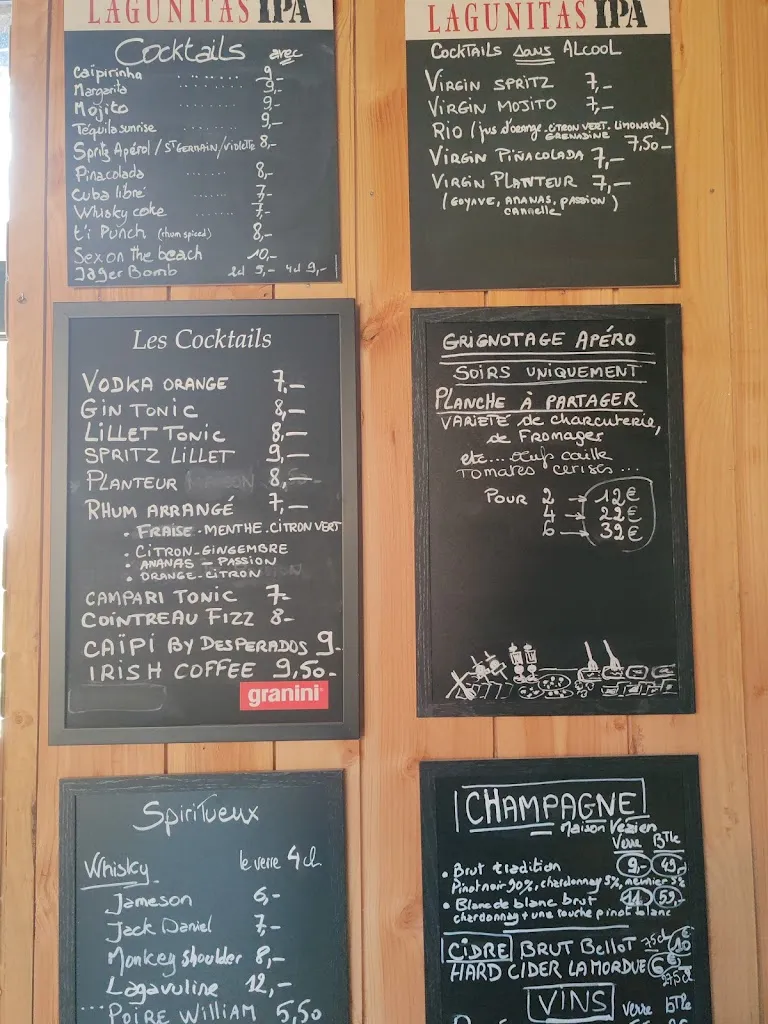 LAGUNITAS IPA
Cocktails avec
Caïpirinha ........ 9,-
Margarita ........ 9,-
Mojito ........ 9,-
Téquila sunrise ........ 9,-
Spritz Apérol / St Germain / Violette 8,-
Pinacolada ...... 8,-
Cuba libre ...... 7,-
Whisky coke ...... 7,-
t'i Punch (rhum spiced) 8,-
Sex on the beach 10,-
Jäger Bomb 2cl 5,- 4cl 9,-
LAGUNITAS IPA
Cocktails sans Alcool
Virgin Spritz 7,-
Virgin Mojito 7,-
Rio (jus d'orange. citron vert. limonade)
grenadine 7,50-
Virgin Piñacolada 7,-
Virgin Planteur 7,-
(goyave, ananas, passion)
cannelle
Les Cocktails
Vodka orange 7,-
Gin Tonic 8,-
Lillet Tonic 8,-
Spritz Lillet 9,-
Planteur 8,-
Rhum arrangé 7,-
• Fraise - Menthe - Citron vert
• Citron - Gingembre
• Ananas - Passion
• Orange - Citron
Campari Tonic 7-
Cointreau Fizz 8-
Caïpi by Desperados 9-
Irish Coffee 9,50-
granini
Grignotage Apéro
Soirs uniquement
Planche à partager
Variété de charcuterie,
de Fromages
etc... oeuf caille
Tomates cerises ...
Pour 2 → 12€
4 → 22€
6 → 32€
Spiritueux
Whisky le verre 4cl
Jameson 6,-
Jack Daniel 7,-
Monkey shoulder 8,-
Lagavuline 12,-
... Poire William 5,50
Champagne
Maison Vézien
Verre Btle
• Brut tradition 9,- 49,-
Pinot noir 90%, chardonnay 5%, meunier 5%
• Blanc de blanc brut 11,- 59,-
chardonnay + une touche pinot blanc
Cidre Brut Bellot 75cl 10
Hard Cider La Mordue 6€
27,5cl
Vins verre btle